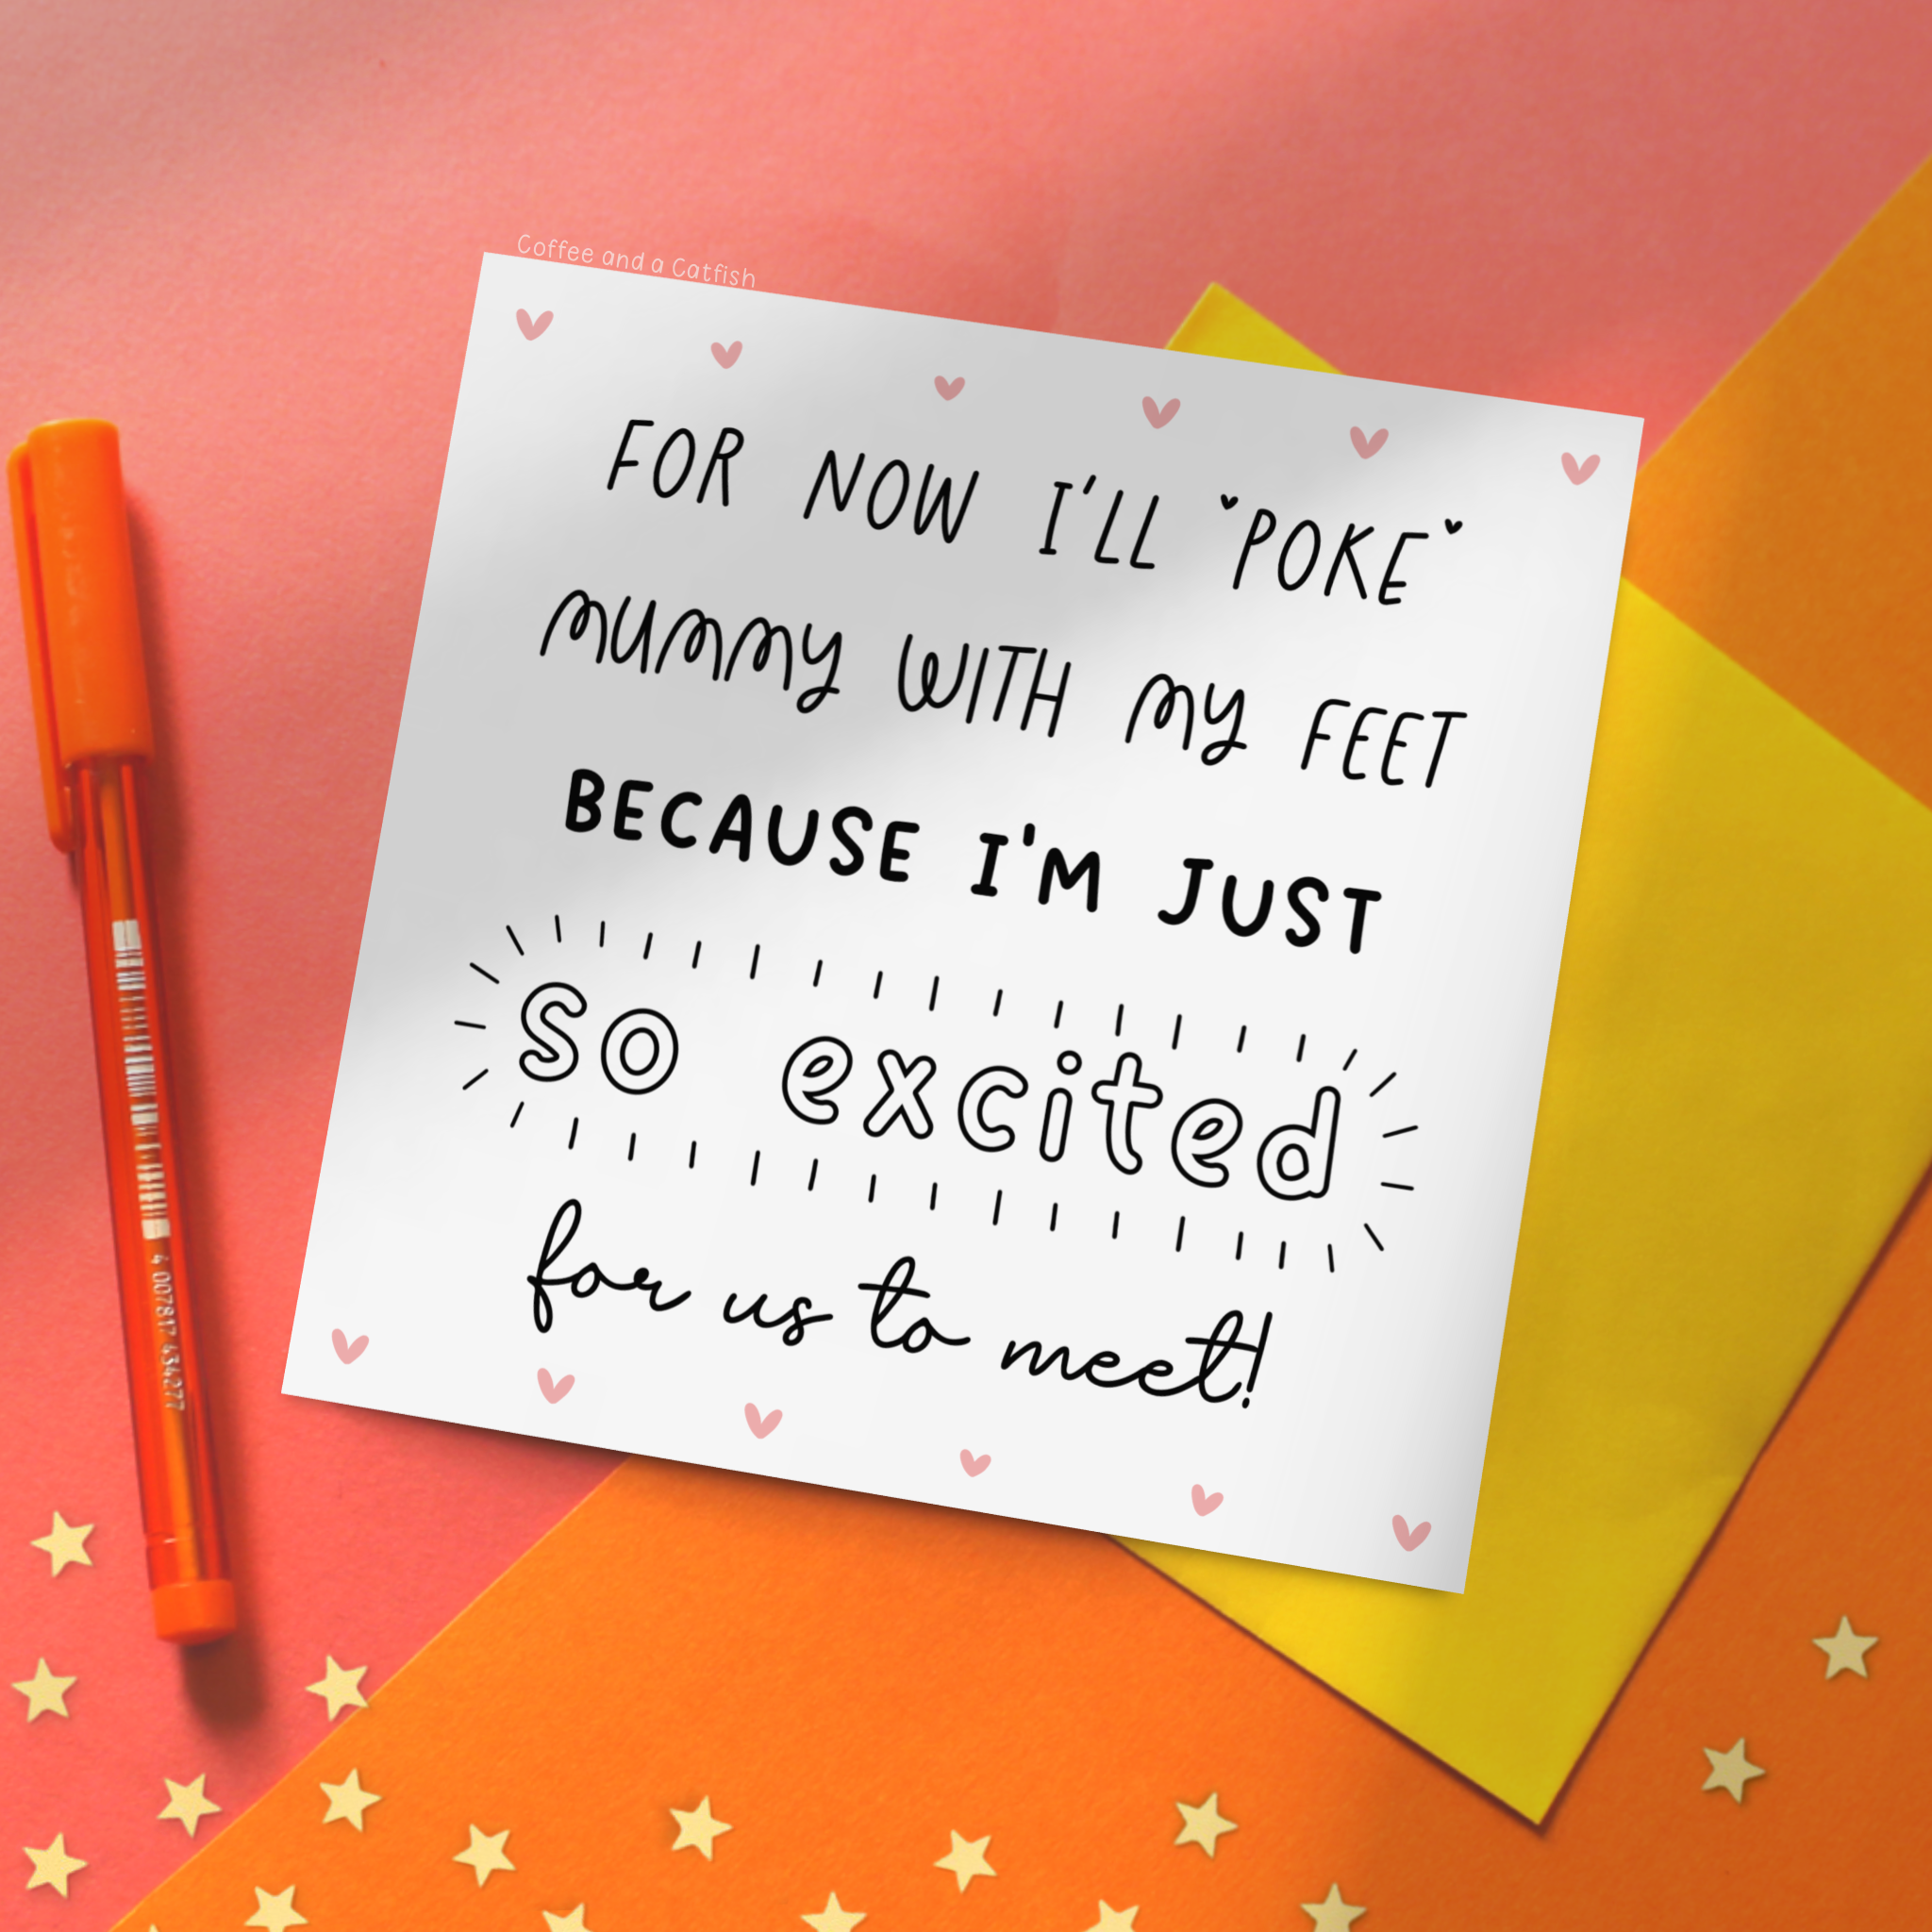 Coffee and a Catfish
FOR NOW I'LL "POKE"
MUMMY WITH MY FEET
BECAUSE I'M JUST
so excited
for us to meet!
4 007817 434277